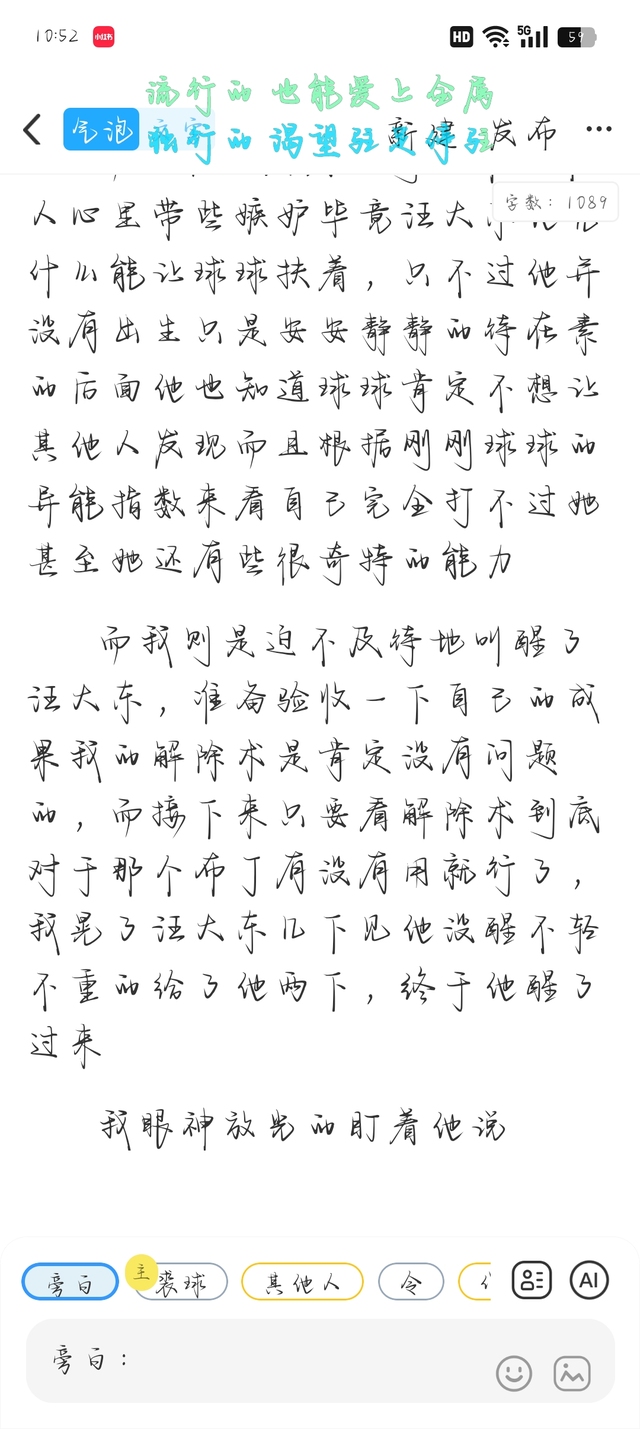 10:52 小红书 HD 5G 59
流行的 也能爱上金属
气泡 新建 发布 ...
字数：1089
人心里带些嫉妒毕竟汪大东
什么能让球球扶着，只不过他并
没有出生只是安安静静的待在素
的后面他也知道球球肯定不想让
其他人发现而且根据刚刚球球的
异能指数来看自己完全打不过她
甚至她还有些很奇特的能力
而我则是迫不及待地叫醒了
汪大东，准备验收一下自己的成
果我的解除术是肯定没有问题
的，而接下来只要看解除术到底
对于那个布丁有没有用就行了，
我晃了汪大东几下见他没醒不轻
不重的给了他两下，终于他醒了
过来
我眼神放光的盯着他说
旁白 主 裘球 其他人 令
AI
旁白：